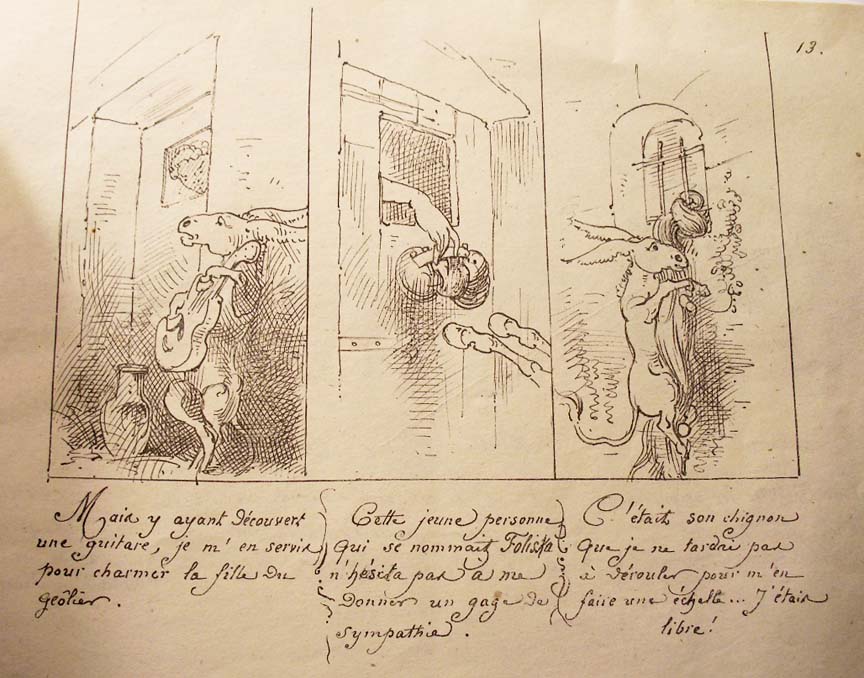 13.
Mais y ayant découvert
une guitare, je m'en servis
pour charmer la fille du
geôlier.
Cette jeune personne
qui se nommait Foliska
n'hésita pas à me
donner un gage de
sympathie.
C'était son chignon
que je ne tardai pas
à dérouler pour m'en
faire une échelle... J'étais
libre!